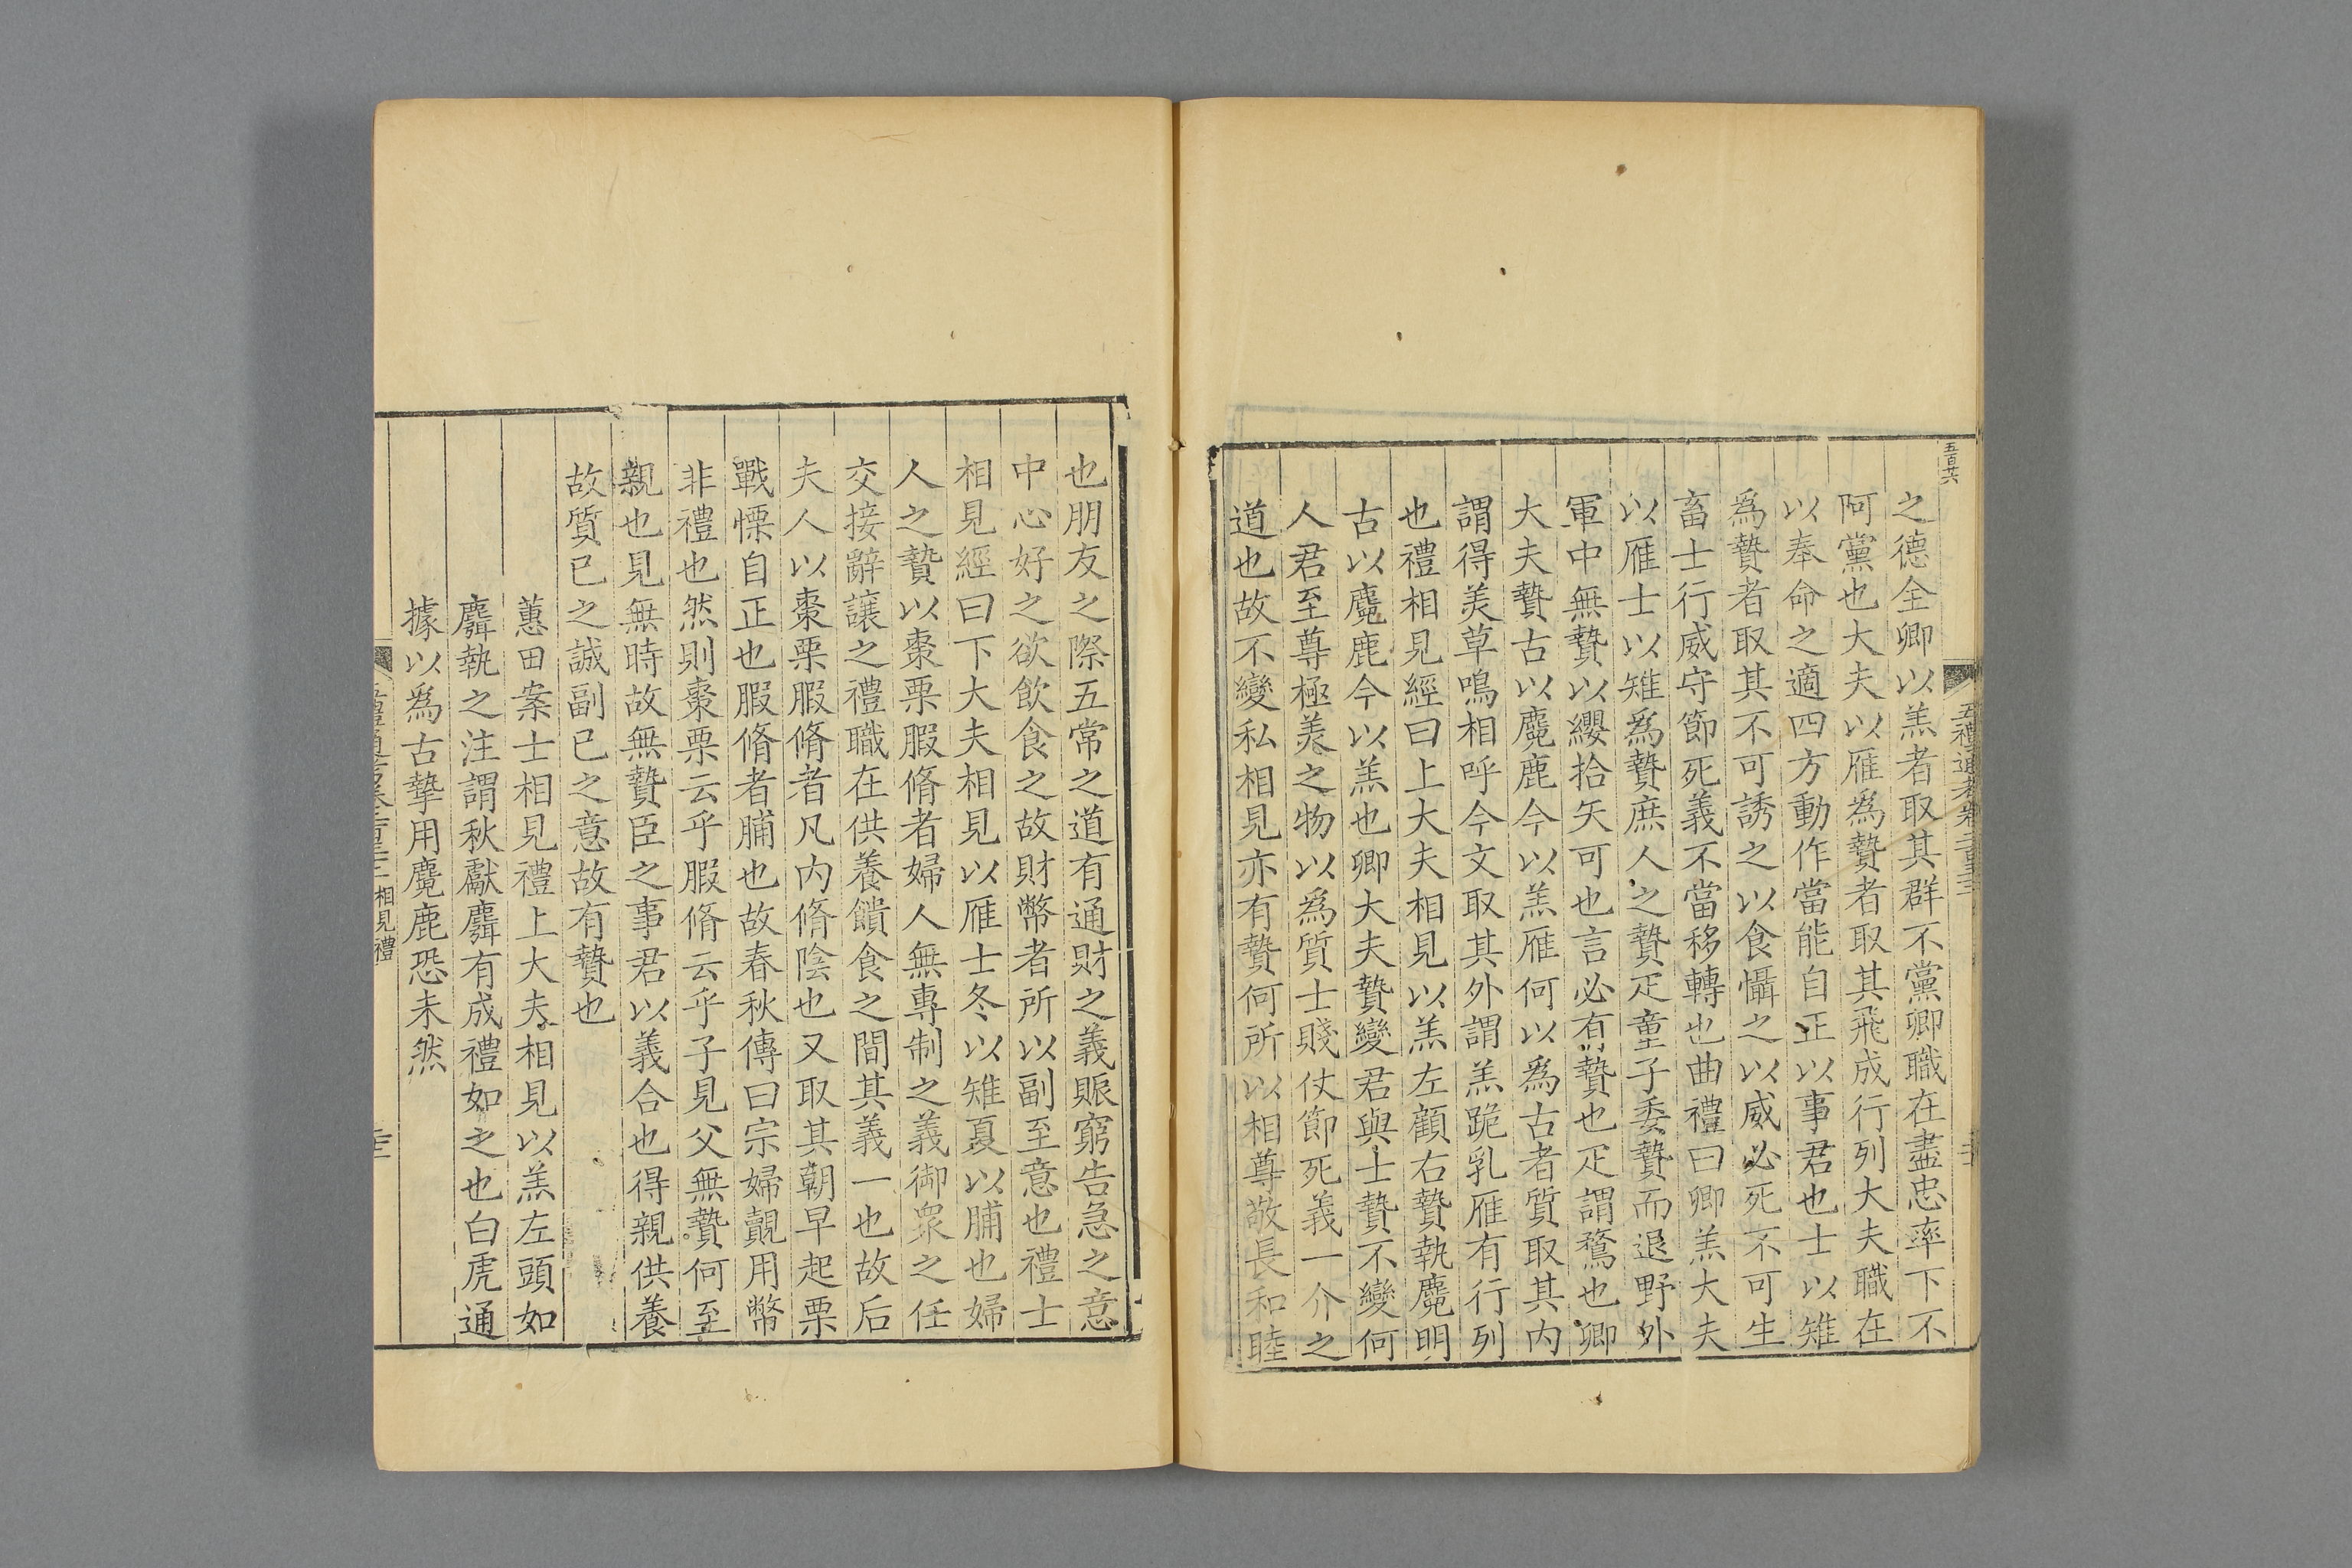 五百共六
五禮通考卷二百三十三
之德全卿以羔者取其群不黨卿職在盡忠率下不
阿黨也大夫以雁爲贄者取其飛成行列大夫職在
以奉命之適四方動作當能自正以事君也士以雉
爲贄者取其不可誘之以食懾之以威必死不可生
畜士行威守節死義不當移轉也曲禮曰卿羔大夫
以雁士以雉爲贄庶人之贄疋童子委贄而退野外
軍中無贄以纓拾矢可也言必有贄也疋謂鶩也卿
大夫贄古以麑鹿今以羔雁何以爲古者質取其內
謂得美草鳴相呼今文取其外謂羔跪乳雁有行列
也禮相見經曰上大夫相見以羔左顧右贄執麑明
古以麑鹿今以羔也卿大夫贄變君與士贄不變何
人君至尊極美之物以爲質士賤仗節死義一介之
道也故不變私相見亦有贄何所以相尊敬長和睦
也朋友之際五常之道有通財之義賑窮告急之意
中心好之欲飲食之故財幣者所以副至意也禮士
相見經曰下大夫相見以雁士冬以雉夏以脯也婦
人之贄以棗栗腶脩者婦人無專制之義御衆之任
交接辭讓之禮職在供養饋食之間其義一也故后
夫人以棗栗腶脩者凡內脩陰也又取其朝早起栗
戰慄自正也腶脩者脯也故春秋傳曰宗婦覿用幣
非禮也然則棗栗云乎腶脩云乎子見父無贄何至
親也見無時故無贄臣之事君以義合也得親供養
故質已之誠副已之意故有贄也
蕙田案士相見禮上大夫相見以羔左頭如
麛執之注謂秋獻麛有成禮如之也白虎通
據以爲古摯用麑鹿恐未然
相見禮